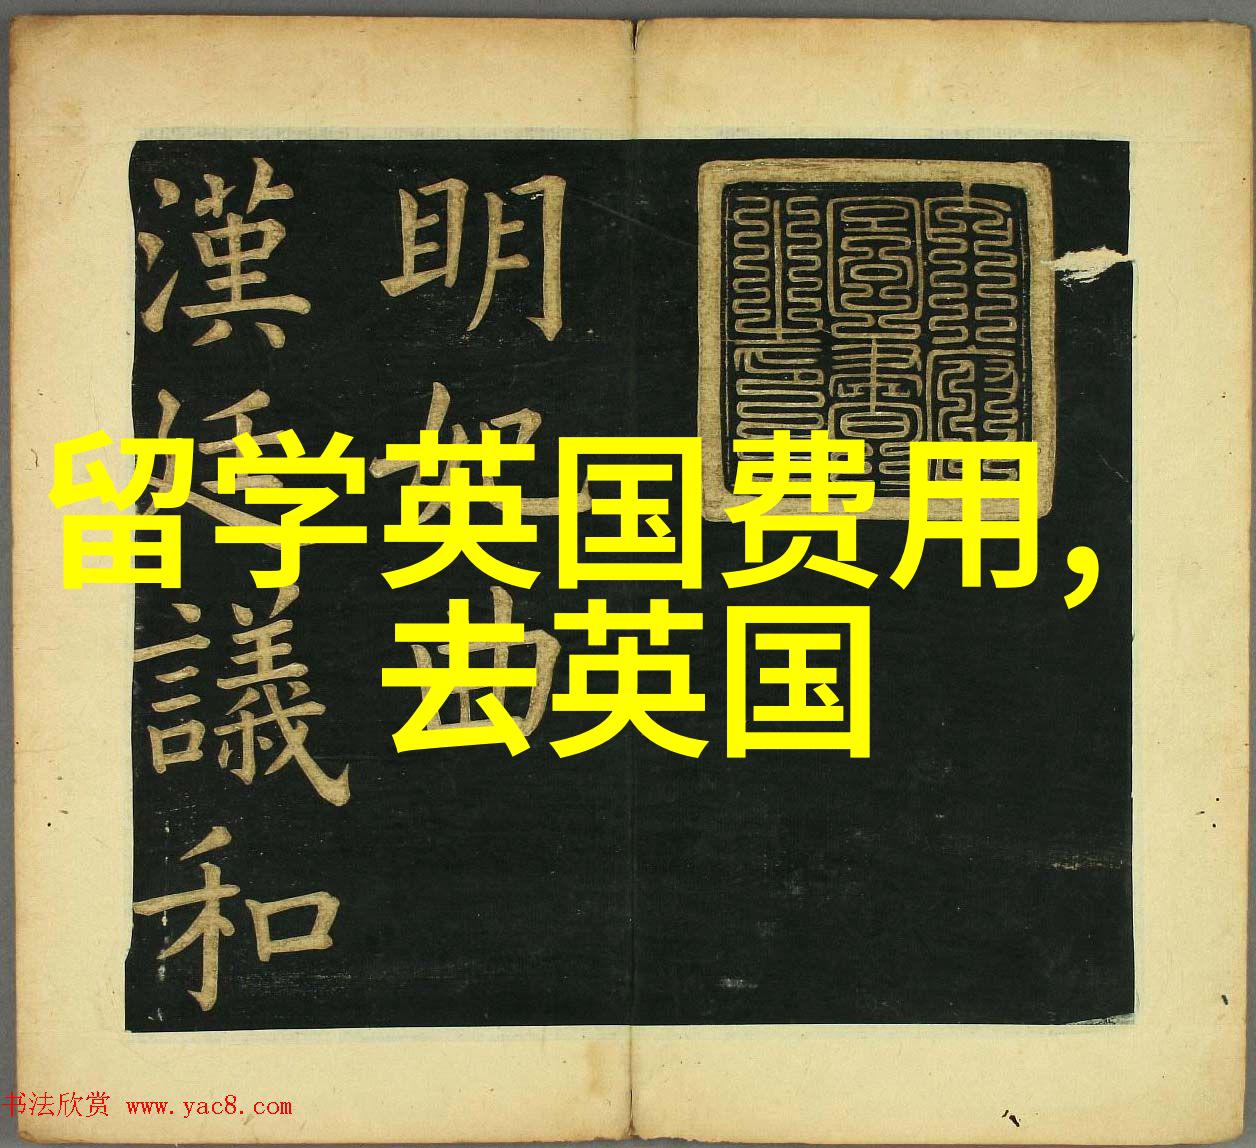 留学英国费用,
去英国
明妃曲
漢姬議和
書
书法欣赏 www.yac8.com